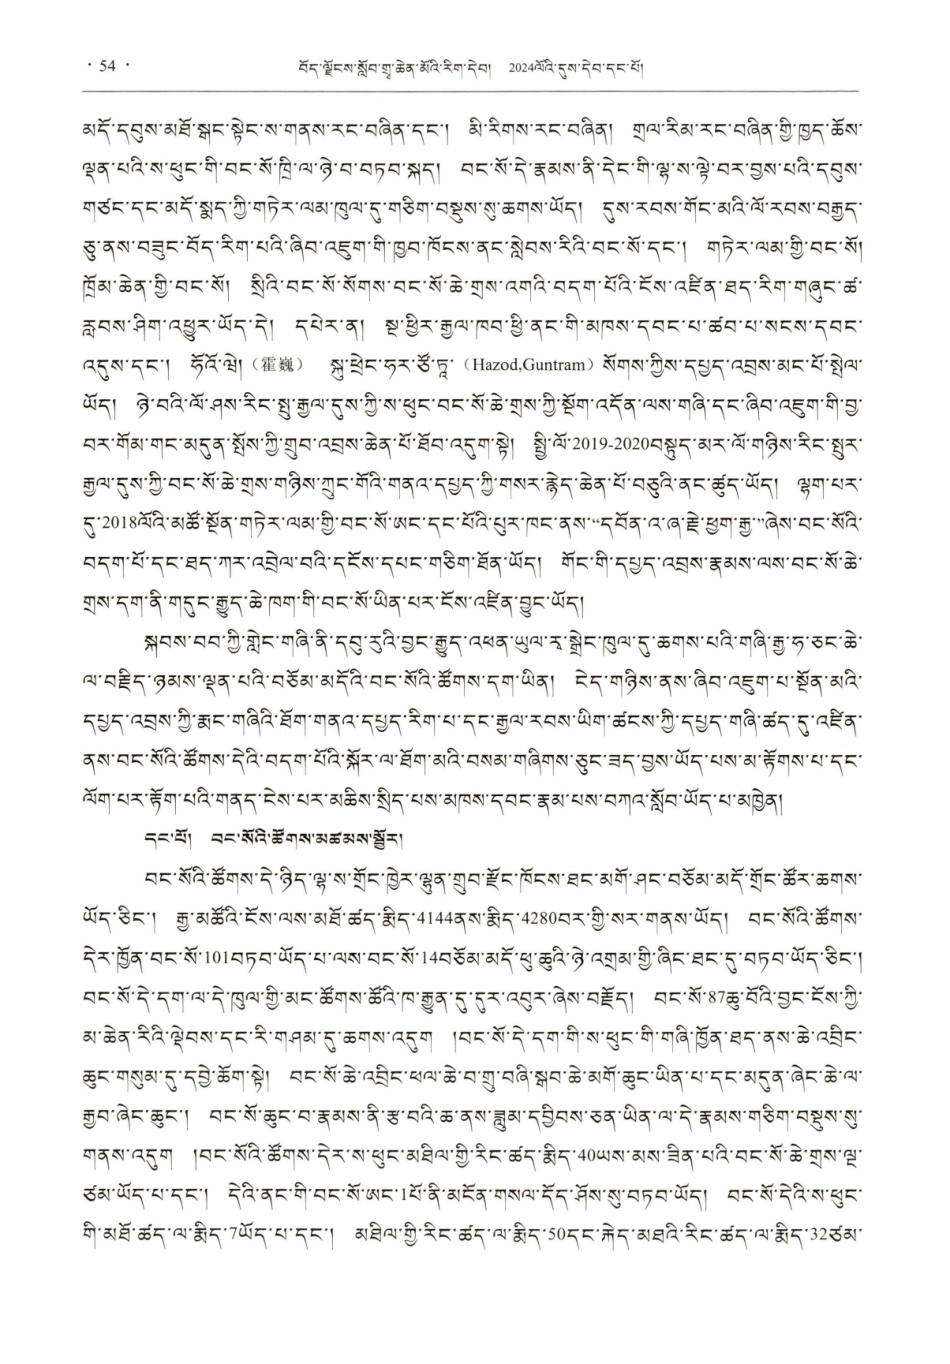 · 54 · བོད་ལྗོངས་སློབ་གྲྭ་ཆེན་མོའི་རིག་དེབ། 2024ལོའི་དུས་དེབ་དང་པོ།
མདོ་དབུས་མཐོ་སྒང་སྟེང་ས་གནས་རང་བཞིན་དང་། མི་རིགས་རང་བཞིན། གྲལ་རིམ་རང་བཞིན་གྱི་ཁྱད་ཆོས་
ལྡན་པའི་ས་ཕུང་གི་བང་སོ་ཁྲི་ལ་ཉེ་བ་བཏབ་སྐད། བང་སོ་དེ་རྣམས་ནི་དེང་གི་ལྷ་ས་ལྟེ་བར་བྱས་པའི་དབུས་
གཙང་དང་མདོ་སྨད་ཀྱི་གཏེར་ལམ་ཁུལ་དུ་གཅིག་བསྡུས་སུ་ཆགས་ཡོད། དུས་རབས་གོང་མའི་ལོ་རབས་བརྒྱད་
ཅུ་ནས་བཟུང་བོད་རིག་པའི་ཞིབ་འཇུག་གི་ཁྱབ་ཁོངས་ནང་སླེབས་རིའི་བང་སོ་དང་། གཏེར་ལམ་གྱི་བང་སོ།
ཁྲོམ་ཆེན་གྱི་བང་སོ། སྲིའི་བང་སོ་སོགས་བང་སོ་ཆེ་གྲས་འགའི་བདག་པོའི་ངོས་འཛིན་ཐད་རིག་གཞུང་ཚ་
རླབས་ཤིག་འཕྱུར་ཡོད་དེ། དཔེར་ན། སྔ་ཕྱིར་རྒྱལ་ཁབ་ཕྱི་ནང་གི་མཁས་དབང་པ་ཚབ་པ་སངས་དབང་
འདུས་དང་། ཧོའོ་ཝེ། (霍巍) སྐུ་ཕྲེང་ཧར་ཙོ་ཏཱ་ (Hazod,Guntram) སོགས་ཀྱིས་དཔྱད་འབྲས་མང་པོ་སྤེལ་
ཡོད། ཉེ་བའི་ལོ་ཤས་རིང་སྤུ་རྒྱལ་དུས་ཀྱི་ས་ཕུང་བང་སོ་ཆེ་གྲས་ཀྱི་སྔོག་འདོན་ལས་གཞི་དང་ཞིབ་འཇུག་གི་བྱ་
བར་གོམ་གང་མདུན་སྤོས་ཀྱི་གྲུབ་འབྲས་ཆེན་པོ་ཐོབ་འདུག་སྟེ། སྤྱི་ལོ་2019-2020བསྟུད་མར་ལོ་གཉིས་རིང་སྤུར་
རྒྱལ་དུས་ཀྱི་བང་སོ་ཆེ་གྲས་གཉིས་ཀྲུང་གོའི་གནའ་དཔྱད་ཀྱི་གསར་རྙེད་ཆེན་པོ་བཅུའི་ནང་ཚུད་ཡོད། ལྷག་པར་
དུ་2018ལོའི་མཚོ་སྔོན་གཏེར་ལམ་གྱི་བང་སོ་ཨང་དང་པོའི་པུར་ཁང་ནས་“དབོན་འ་ཞ་རྗེ་ཕྱག་རྒྱ་”ཞེས་བང་སོའི་
བདག་པོ་དང་ཐད་ཀར་འབྲེལ་བའི་དངོས་དཔང་གཅིག་ཐོན་ཡོད། གོང་གི་དཔྱད་འབྲས་རྣམས་ལས་བང་སོ་ཆེ་
གྲས་དག་ནི་གདུང་རྒྱུད་ཆེ་ཁག་གི་བང་སོ་ཡིན་པར་ངོས་འཛིན་བྱུང་ཡོད།
སྐབས་བབ་ཀྱི་གླེང་གཞི་ནི་དབུ་རུའི་བྱང་རྒྱུད་འཕན་ཡུལ་ར་སྒྲེང་ཁུལ་དུ་ཆགས་པའི་གཞི་རྒྱ་ཧ་ཅང་ཆེ་
ལ་བརྗིད་ཉམས་ལྡན་པའི་བཅོམ་མདོའི་བང་སོའི་ཚོགས་དག་ཡིན། ངེད་གཉིས་ནས་ཞིབ་འཇུག་པ་སྔོན་མའི་
དཔྱད་འབྲས་ཀྱི་རྨང་གཞིའི་ཐོག་གནའ་དཔྱད་རིག་པ་དང་རྒྱལ་རབས་ཡིག་ཚངས་ཀྱི་དཔྱད་གཞི་ཚད་དུ་འཛིན་
ནས་བང་སོའི་ཚོགས་དེའི་བདག་པོའི་སྐོར་ལ་ཐོག་མའི་བསམ་གཞིགས་ཅུང་ཟད་བྱས་ཡོད་པས་མ་རྟོགས་པ་དང་
ལོག་པར་རྟོག་པའི་གནད་ངེས་པར་མཆིས་སྲིད་པས་མཁས་དབང་རྣམ་པས་བཀའ་སློབ་ཡོད་པ་མཁྱེན།
དང་པོ། བང་སོའི་ཚོགས་མཚམས་སྦྱོར།
བང་སོའི་ཚོགས་དེ་ཉིད་ལྷ་ས་གྲོང་ཁྱེར་ལྷུན་གྲུབ་རྫོང་ཁོངས་ཐང་མགོ་ཤང་བཅོམ་མདོ་གྲོང་ཚོར་ཆགས་
ཡོད་ཅིང་། རྒྱ་མཚོའི་ངོས་ལས་མཐོ་ཚད་རྨིད་4144ནས་རྨིད་4280བར་གྱི་སར་གནས་ཡོད། བང་སོའི་ཚོགས་
དེར་ཁྱོན་བང་སོ་101བཏབ་ཡོད་པ་ལས་བང་སོ་14བཅོམ་མདོ་ཕུ་ཆུའི་ཉེ་འགྲམ་གྱི་ཞིང་ཐང་དུ་བཏབ་ཡོད་ཅིང་།
བང་སོ་དེ་དག་ལ་དེ་ཁུལ་གྱི་མང་ཚོགས་ཚོའི་ཁ་རྒྱུན་དུ་དུར་འབུར་ཞེས་བརྗོད། བང་སོ་87ཆུ་བོའི་བྱང་ངོས་ཀྱི་
མ་ཆེན་རིའི་ལྡེབས་དང་རི་གཤམ་དུ་ཆགས་འདུག །བང་སོ་དེ་དག་གི་ས་ཕུང་གི་གཞི་ཁྱོན་ཐད་ནས་ཆེ་འབྲིང་
ཆུང་གསུམ་དུ་དབྱེ་ཆོག་སྟེ། བང་སོ་ཆེ་འབྲིང་ཕལ་ཆེ་བ་གྲུ་བཞི་སྒབ་ཆེ་མགོ་ཆུང་ཡིན་པ་དང་མདུན་ཞེང་ཆེ་ལ་
རྒྱབ་ཞེང་ཆུང་། བང་སོ་ཆུང་བ་རྣམས་ནི་རྩ་བའི་ཆ་ནས་ཟླུམ་དབྱིབས་ཅན་ཡིན་ལ་དེ་རྣམས་གཅིག་བསྡུས་སུ་
གནས་འདུག །བང་སོའི་ཚོགས་དེར་ས་ཕུང་མཐིལ་གྱི་རིང་ཚད་རྨིད་40ཡས་མས་ཟིན་པའི་བང་སོ་ཆེ་གྲས་ལྔ་
ཙམ་ཡོད་པ་དང་། དེའི་ནང་གི་བང་སོ་ཨང་1པོ་ནི་མངོན་གསལ་དོད་ཤོས་སུ་བཏབ་ཡོད། བང་སོ་དེའི་ས་ཕུང་
གི་མཐོ་ཚད་ལ་རྨིད་7ཡོད་པ་དང་། མཐིལ་གྱི་རིང་ཚད་ལ་རྨིད་50དང་རྐེད་མཐའི་རིང་ཚད་ལ་རྨིད་32ཙམ་